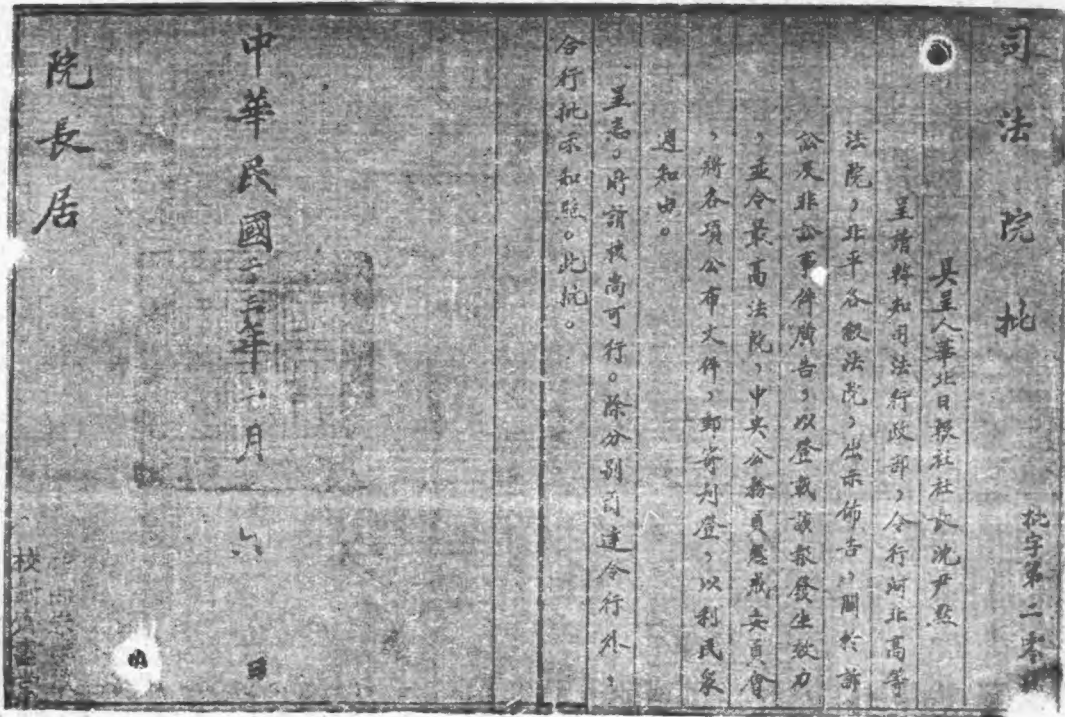 司法院批
批字第二零
具呈人華北日報社社長沈尹默
呈請轉知司法行政部，令行河北高等
法院，北平各級法院，出示佈告，關於訴
訟及非訟事件廣告，以登載該報發生效力
，並令最高法院，中央公務員懲戒委員會
，將各項公布文件，郵寄刊登，以利民眾
週知由。
呈悉。所請核尚可行。除分別函達令行外，
合行批示知照。此批。
中華民國二十年 月 六 日
院長居
校